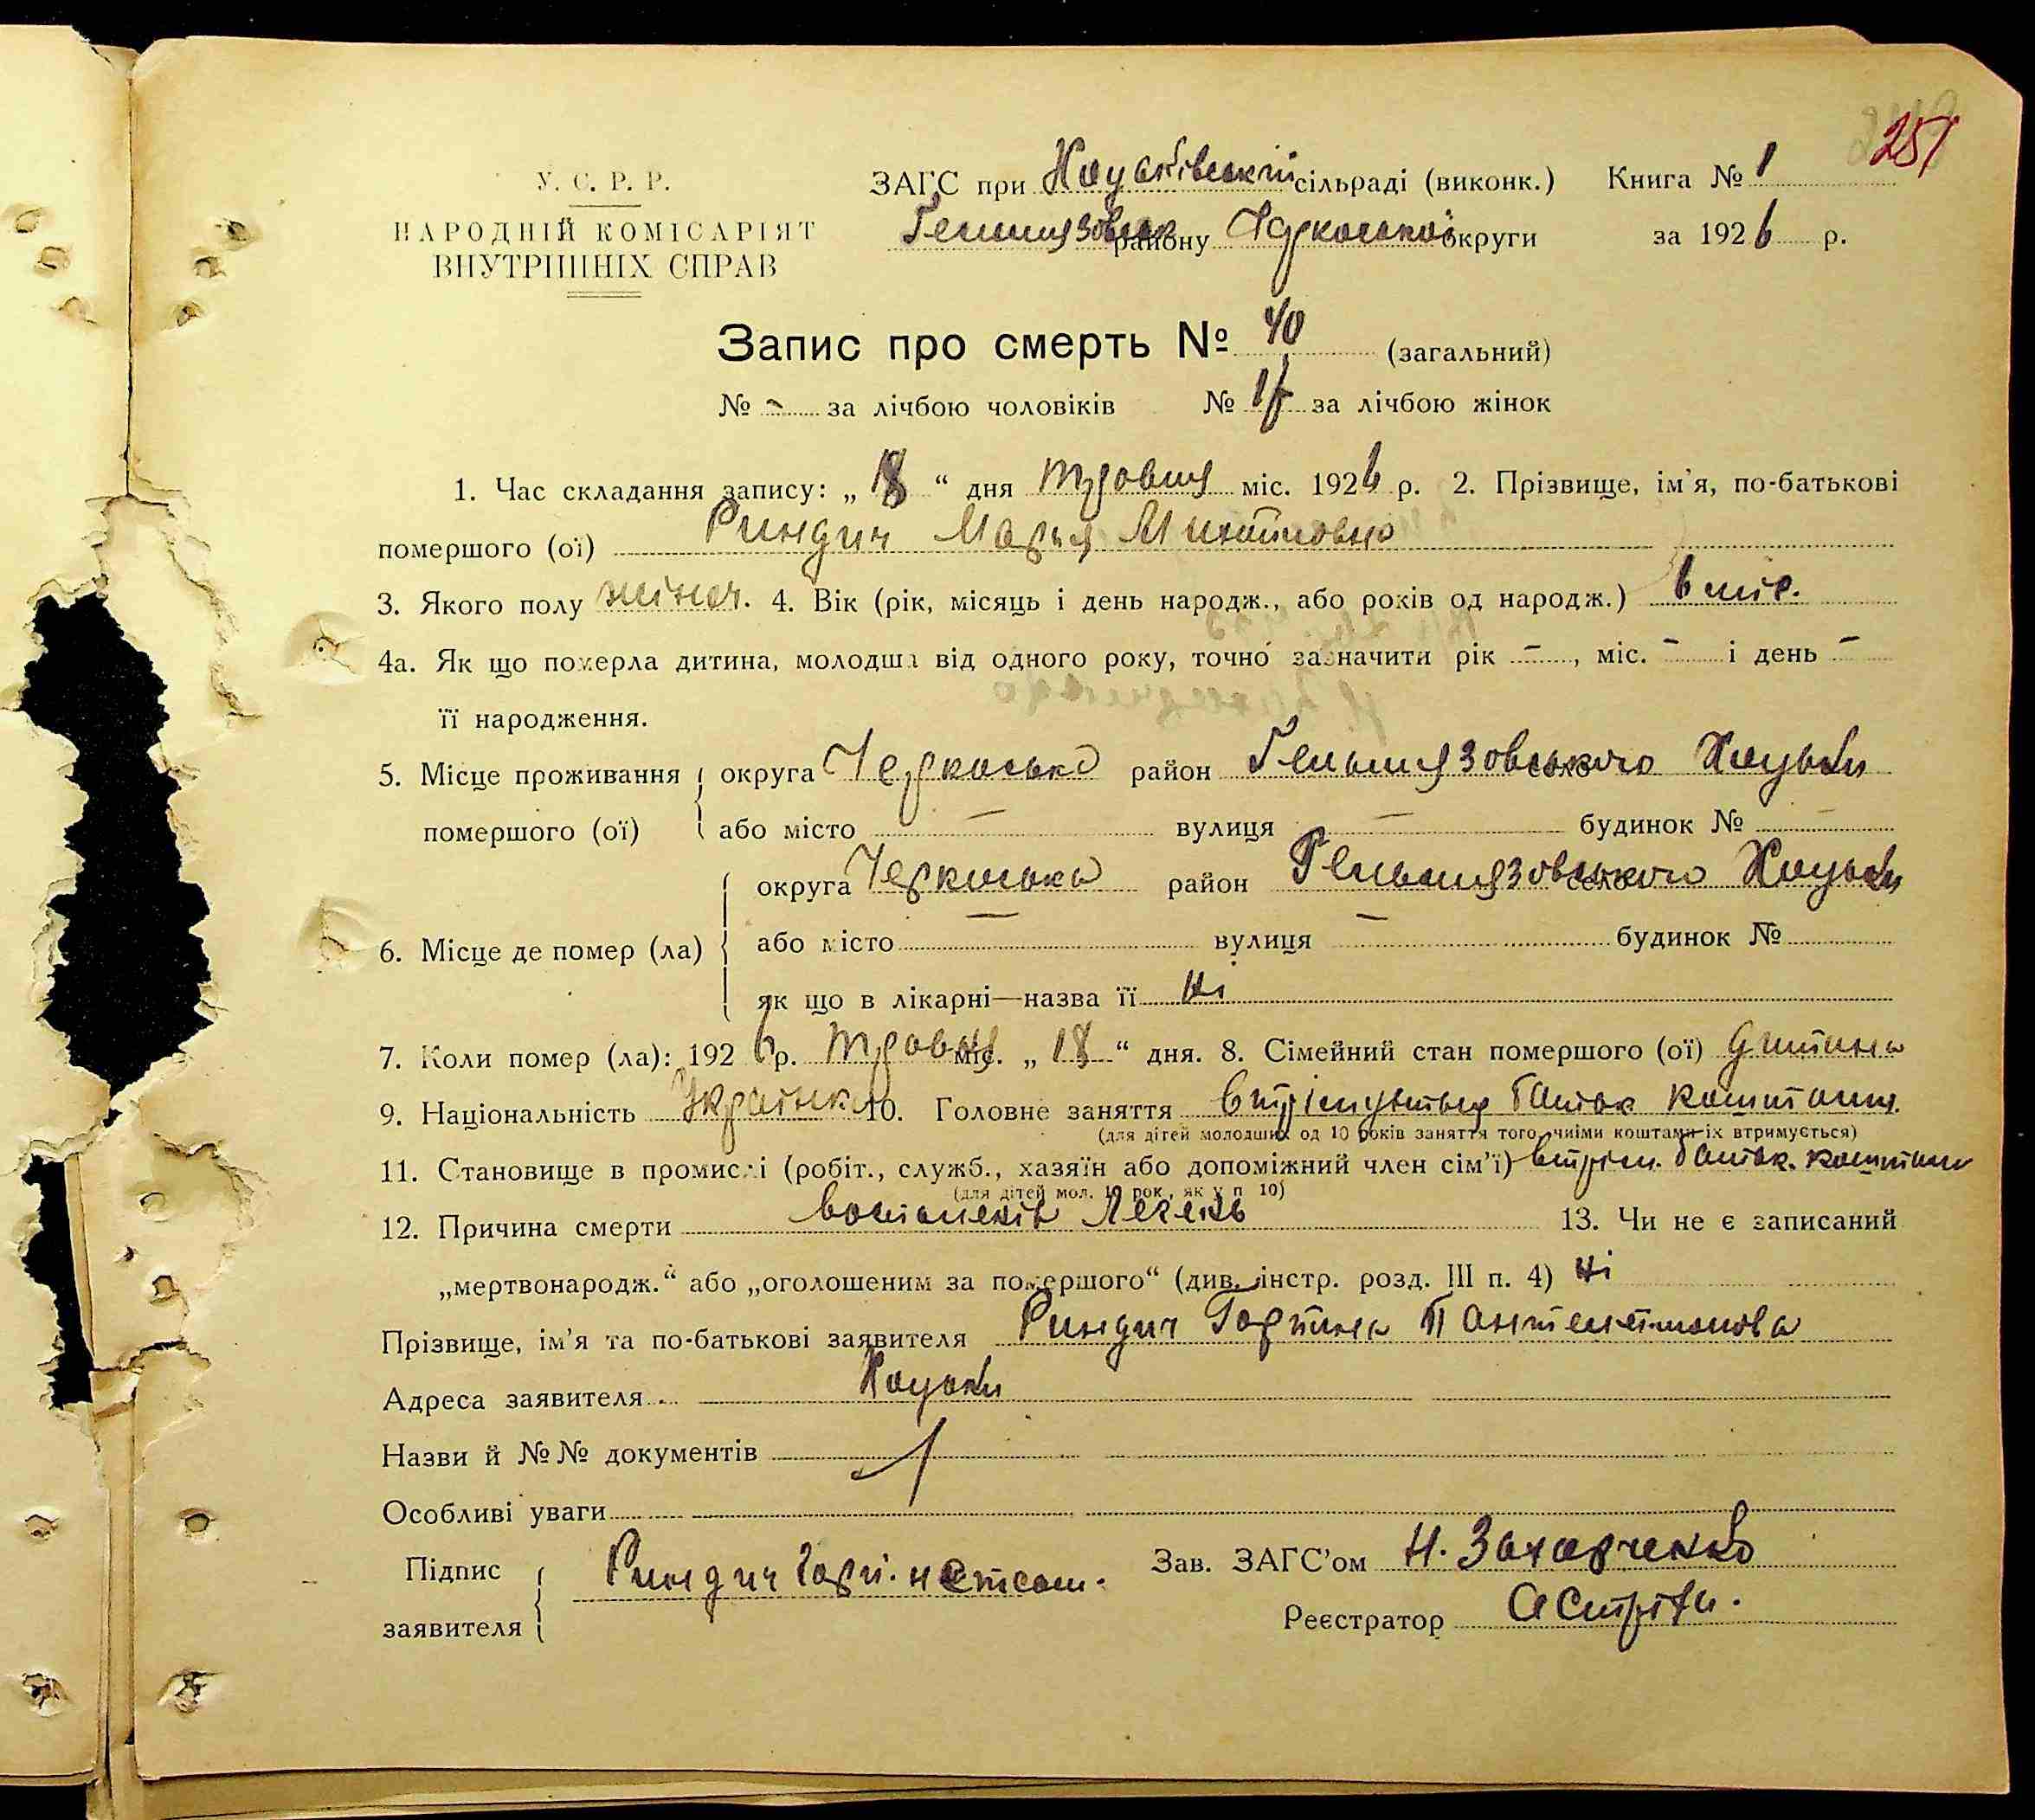 251
У. С. Р. Р.
НАРОДНІЙ КОМІСАРІЯТ
ВНУТРІШНІХ СПРАВ
ЗАГС при Хоцьківський сільраді (виконк.) Книга № 1
Гельмязовськ району Черкаської округи за 1926 р.
Запис про смерть № 40 (загальний)
№ - за лічбою чоловіків № 17 за лічбою жінок
1. Час складання запису: „ 18 “ дня травня міс. 1926 р. 2. Прізвище, ім'я, по-батькові
помершого (ої) Риндич Марья Микитовна
3. Якого полу жіноч. 4. Вік (рік, місяць і день народж., або років од народж.) 6 міс.
4а. Як що померла дитина, молодша від одного року, точно зазначити рік –, міс. – і день –
її народження.
5. Місце проживання округа Черкаська район Гельмязовського село Хоцьки
помершого (ої) або місто — вулиця — будинок № —
округа Черкаська район Гельмязовського село Хоцьки
6. Місце де помер (ла) або місто — вулиця — будинок №
як що в лікарні—назва її ні
7. Коли помер (ла): 1926 р. травня міс. „ 18 “ дня. 8. Сімейний стан помершого (ої) дитина
9. Національність Українка 10. Головне заняття втрімується батьк коштами.
(для дітей молодших од 10 років заняття того, чиїми коштами їх втримується)
11. Становище в промислі (робіт., служб., хазяїн або допоміжний член сім'ї) втрім. батьк. коштами
(для дітей мол. 10 рок., як у п 10)
12. Причина смерти легень 13. Чи не є записаний
„мертвонародж.“ або „оголошеним за помершого“ (див. інстр. розд. III п. 4) ні
Прізвище, ім'я та по-батькові заявителя Риндич Горпина Пантелеймонова
Адреса заявителя Хоцьки
Назви й №№ документів
Особливі уваги
Підпис Риндич Горп. неписьм. Зав. ЗАГС'ом Н. Захарченко
заявителя Реєстратор